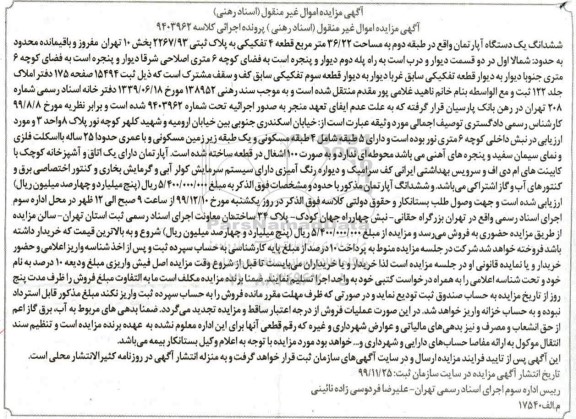 آگهی مزایده اموال غیر منقول (اسناد رهنی)
آگهی مزایده اموال غیر منقول (اسناد رهنی) پرونده اجرائی کلاسه ۹۴۰۳۹۶۲
ششدانگ یک دستگاه آپارتمان واقع در طبقه دوم به مساحت ۳۶/۲۲ متر مربع قطعه ۴ تفکیکی به پلاک ثبتی ۲۲۶۷/۹۳ بخش ۱۰ تهران مفروز و باقیمانده محدود
به حدود: شمالا اول در دو قسمت دیوار و درب است به راه پله دوم دیوار و پنجره است به فضای کوچه ۶ متری اصلاحی شرقا دیوار و پنجره است به فضای کوچه ۶
متری جنوبا دیوار به دیوار قطعه تفکیکی سابق غربا دیوار به دیوار قطعه سوم تفکیکی سابق کف و سقف مشترک است که ذیل ثبت ۱۵۴۹۴ صفحه ۱۷۵ دفتر املاک
جلد ۱۲۲ ثبت و مع الواسطه بنام خانم ناهید غلامی پور مقدم منتقل شده است و به موجب سند رهنی ۱۳۸۹۵۲ مورخ ۱۳۳۹/۰۶/۱۸ دفتر خانه اسناد رسمی شماره
۲۰۸ تهران در رهن بانک پارسیان قرار گرفته که به علت عدم ایفای تعهد منجر به صدور اجرائیه تحت شماره ۹۴۰۳۹۶۲ شده است و برابر نظریه مورخ ۹۹/۸/۸
کارشناس رسمی دادگستری توصیف اجمالی مورد وثیقه عبارت است از: خیابان اسکندری جنوبی بین خیابان ارومیه و شهید کلهر کوچه نور پلاک ۸ واحد ۳ و مورد
ارزیابی در نبش داخلی کوچه ۶ متری نور بوده است و دارای ۵ طبقه شامل ۴ طبقه مسکونی و یک طبقه زیرزمین مسکونی و با عمری حدودا ۲۵ ساله با اسکلت فلزی
و نمای سیمان سفید و پنجره های آهنی می باشد محوطه ای ندارد و به صورت ۱۰۰ اشغال در قطعه ساخته شده است. آپارتمان دارای یک اتاق و آشپزخانه کوچک با
کابینت های ام دی اف و سرویس بهداشتی ایرانی کف سرامیک و دیواره رنگ آمیزی دارای سیستم سرمایش کولر آبی و گرمایش بخاری و کنتور اختصاصی برق و
کنتورهای آب و گاز اشتراکی می باشد. و ششدانگ آپارتمان مذکور با حدود و مشخصات فوق الذکر به مبلغ ۵/۴۰۰/۰۰۰/۰۰۰ ریال (پنج میلیارد و چهارصد میلیون ریال)
ارزیابی شده است و جهت وصول طلب بستانکار و حقوق دولتی کلاسه فوق الذکر در روز یکشنبه مورخ ۹۹/۱۲/۱۰ از ساعت ۹ صبح الی ۱۲ ظهر در محل اداره سوم
اجرای اسناد رسمی واقع در تهران بزرگراه حقانی- نبش چهارراه جهان کودک- پلاک ۳۴ ساختمان معاونت اجرای اسناد رسمی ثبت استان تهران- سالن مزایده
از طریق مزایده حضوری به فروش می رسد و مزایده از مبلغ ۵/۴۰۰/۰۰۰/۰۰۰ ریال (پنج میلیارد و چهارصد میلیون ریال) شروع و به بالاترین قیمت که خریدار داشته
باشد فروخته خواهد شد شرکت در جلسه مزایده منوط به پرداخت ۱۰ درصد از مبلغ پایه کارشناسی به حساب سپرده ثبت و پس از اخذ شناسه واریز اعلامی و حضور
خریدار و یا نماینده قانونی او در جلسه مزایده است لذا خریدار و یا خریداران می بایست تا قبل از شروع وقت مزایده اصل فیش واریزی مبلغ ودیعه ۱۰ درصد به نام
خود و تحت شناسه اعلامی را به همراه درخواست کتبی خود به واحد اجرا تسلیم نمایند. ضمنا برنده مزایده مکلف است ما به التفاوت مبلغ فروش را ظرف مدت پنج
روز از تاریخ مزایده به حساب صندوق ثبت تودیع نماید و در صورتی که ظرف مهلت مقرر مانده فروش را به حساب سپرده ثبت واریز نکند مبلغ مذکور قابل استرداد
نبوده و به حساب خزانه واریز خواهد شد. در این صورت عملیات فروش از درجه اعتبار ساقط و مزایده تجدید می گردد. ضمنا بدهی های مربوط به آب، برق گاز اعم
از حق انشعاب و مصرف و نیز بدهی های مالیاتی و عوارض شهرداری و غیره که رقم قطعی آنها برای این اداره معلوم نشده به عهده برنده مزایده است و تنظیم سند
انتقال موکول به ارائه مفاصا حساب های دارایی و شهرداری و... خواهد بود مورد مزایده با توجه به اعلام وکیل بستانکار بیمه می باشد.
این آگهی پس از تایید فرایند مزایده ارسال و در سایت آگهی های سازمان ثبت قرار خواهد گرفت و به منزله انتشار آگهی در روزنامه کثیرالانتشار محلی است.
تاریخ انتشار آگهی مزایده در سایت سازمان ثبت: ۹۹/۱۱/۲۵
رییس اداره سوم اجرای اسناد رسمی تهران- علیرضا فردوسی زاده نائینی
م.الف ۱۷۵۴۰